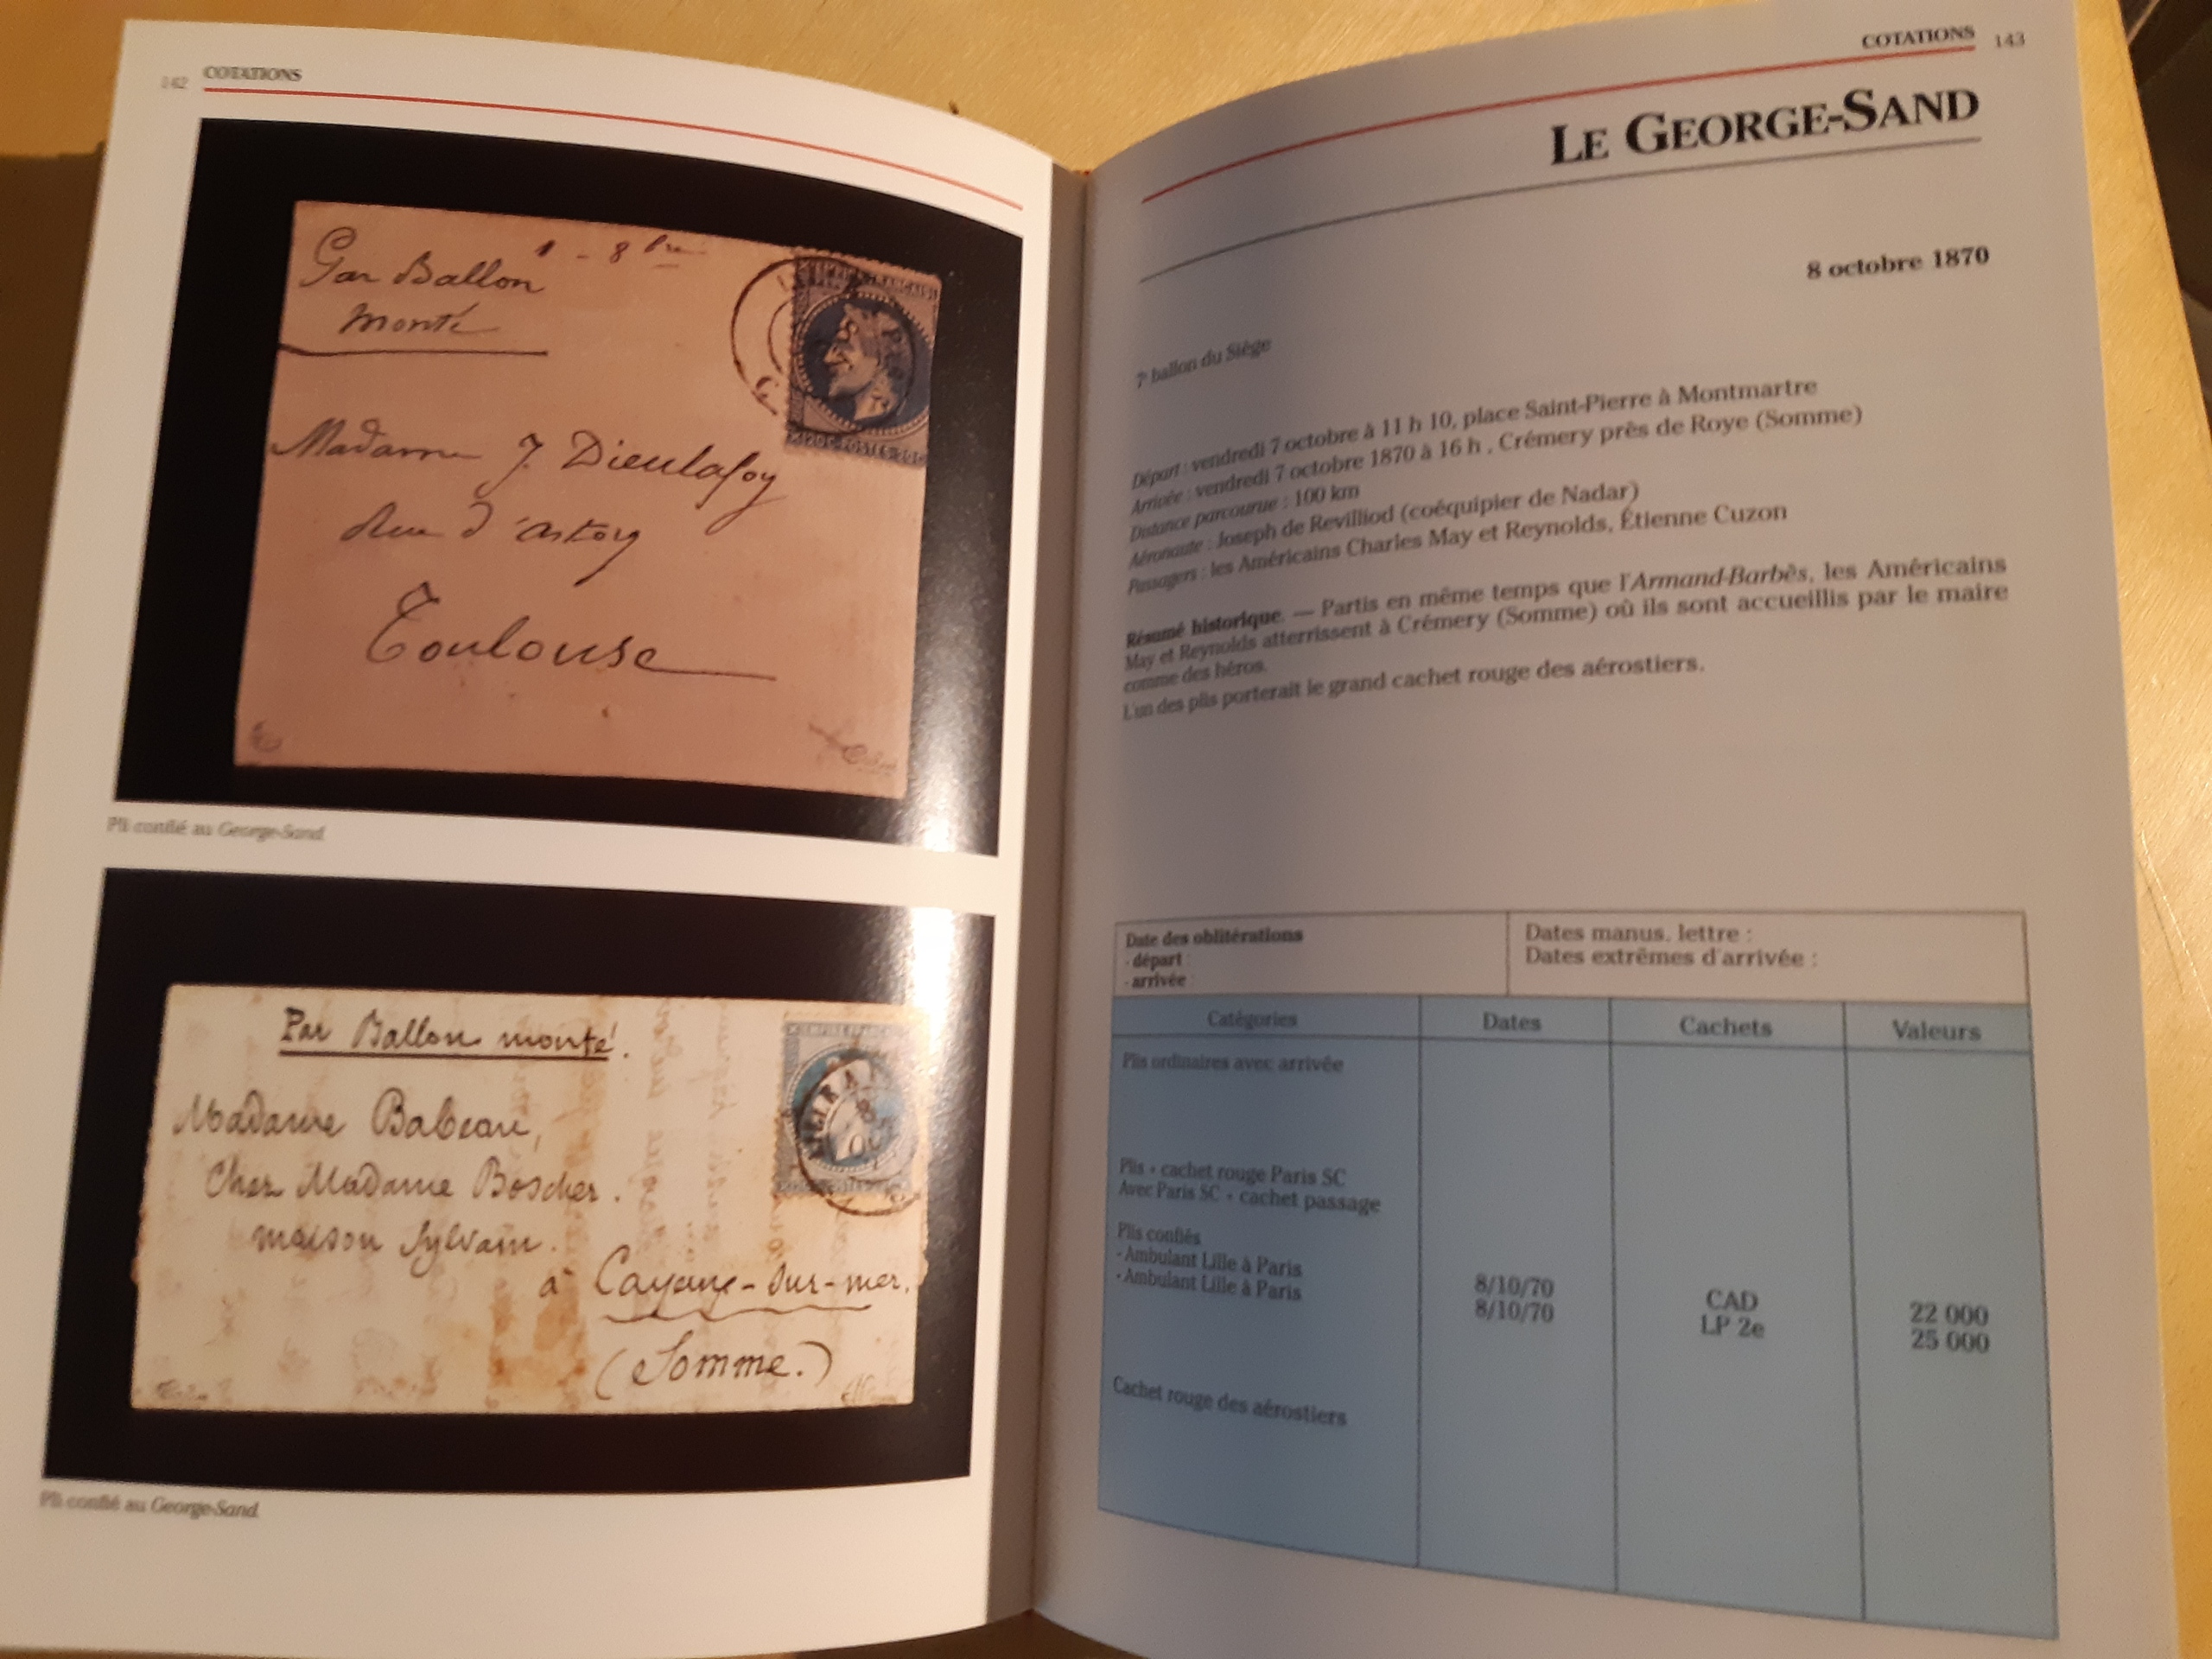 142 COTATIONS
Par Ballon
monté
1 - 8 bre
EMPIRE FRANÇAIS
20 C POSTES 20 C
Madame J. Dieulafoy
Rue d'astorg
Toulouse
Pli confié au George-Sand.
Par Ballon monté.
Madame Babeau,
Chez Madame Boscher.
maison Sylvain.
à Cayeux-sur-mer.
(Somme.)
Pli confié au George-Sand.
COTATIONS 143
LE GEORGE-SAND
8 octobre 1870
7e ballon du Siège
Départ : vendredi 7 octobre à 11 h 10, place Saint-Pierre à Montmartre
Arrivée : vendredi 7 octobre 1870 à 16 h , Crémery près de Roye (Somme)
Distance parcourue : 100 km
Aéronaute : Joseph de Revilliod (coéquipier de Nadar)
Passagers : les Américains Charles May et Reynolds, Étienne Cuzon
Résumé historique. — Partis en même temps que l'Armand-Barbès, les Américains
May et Reynolds atterrissent à Crémery (Somme) où ils sont accueillis par le maire
comme des héros.
L'un des plis porterait le grand cachet rouge des aérostiers.
Date des oblitérations
- départ :
- arrivée :
Dates manus. lettre :
Dates extrêmes d'arrivée :
Catégories Dates Cachets Valeurs
Plis ordinaires avec arrivée
Plis + cachet rouge Paris SC
Avec Paris SC + cachet passage
Plis confiés
- Ambulant Lille à Paris 8/10/70 CAD 22 000
- Ambulant Lille à Paris 8/10/70 LP 2e 25 000
Cachet rouge des aérostiers